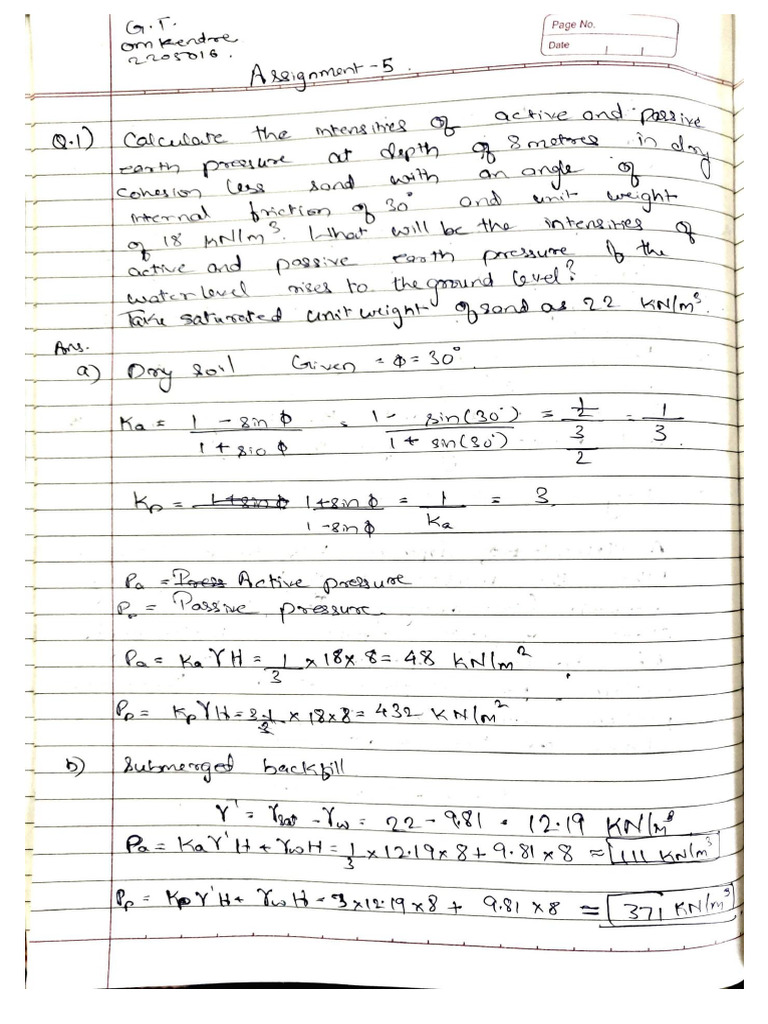 G.T.
Om Kendre
2205016.
Page No.
Date
Assignment-5.
Q.1) Calculate the intensities of active and passive
earth pressure at depth of 8 metres in dry
cohesion less sand with an angle of
internal friction of 30° and unit weight
of 18 kN/m³. What will be the intensities of
active and passive earth pressure if the
water level rises to the ground level?
Take saturated unit weight of sand as 22 KN/m³.
Ans.
a) Dry soil Given = ϕ = 30°
Ka = (1 - sin ϕ)/(1 + sin ϕ) = (1 - sin(30°))/(1 + sin(30°)) = (1/2)/(3/2) = 1/3.
Kp = (1+sin ϕ)/(1-sin ϕ) = 1/Ka = 3
Pa = Active pressure
Pp = Passive pressure.
Pa = Ka γH = 1/3 × 18 × 8 = 48 KN/m²
Pp = Kp γH = 3 × 18 × 8 = 432 KN/m²
b) Submerged backfill
γ' = γsat - γw = 22 - 9.81 = 12.19 KN/m³
Pa = Ka γ'H + γw H = 1/3 × 12.19 × 8 + 9.81 × 8 ≈ 111 KN/m³
Pp = Kp γ'H + γw H = 3 × 12.19 × 8 + 9.81 × 8 ≈ 371 KN/m³